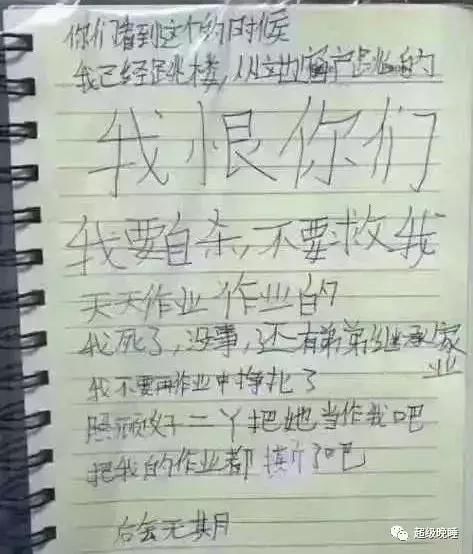 你们看到这个的时候
我已经跳楼,从这的窗户跳的
我恨你们
我要自杀,不要救我
天天作业作业的
我死了,没事,还有弟弟继承家业
我不要再作业中挣扎了
照顾好二丫把她当作我吧
把我的作业都 了吧
后会无期
超级晚睡